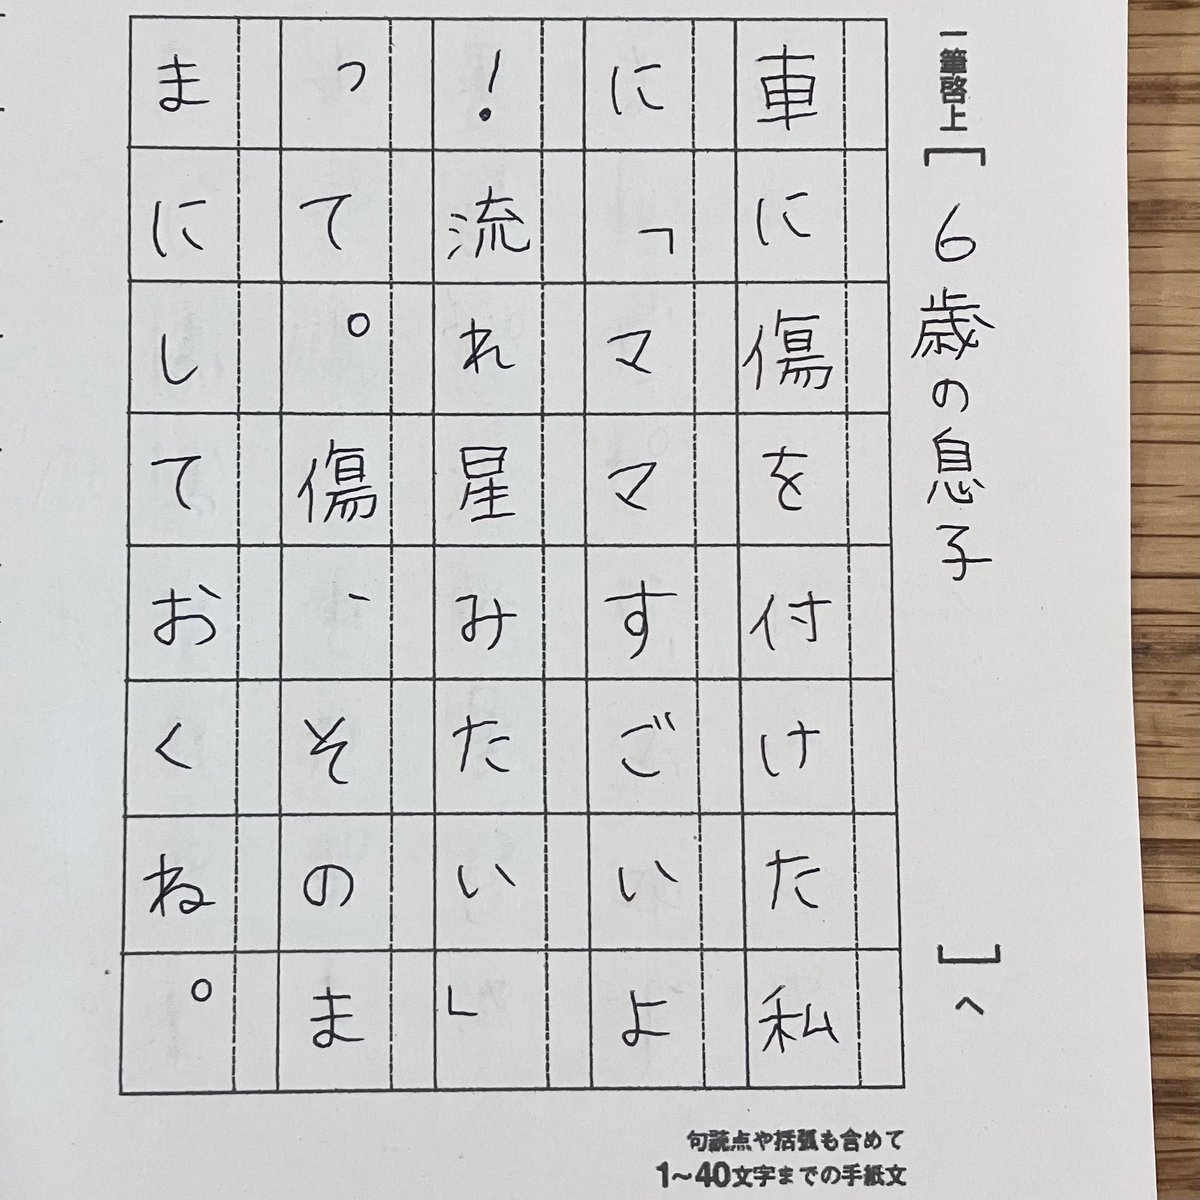 一筆啓上[6歳の息子]へ
車に傷を付けた私
に「ママすごいよ
！流れ星みたい」
って。傷、そのま
まにしておくね。
句読点や括弧も含めて
1〜40文字までの手紙文